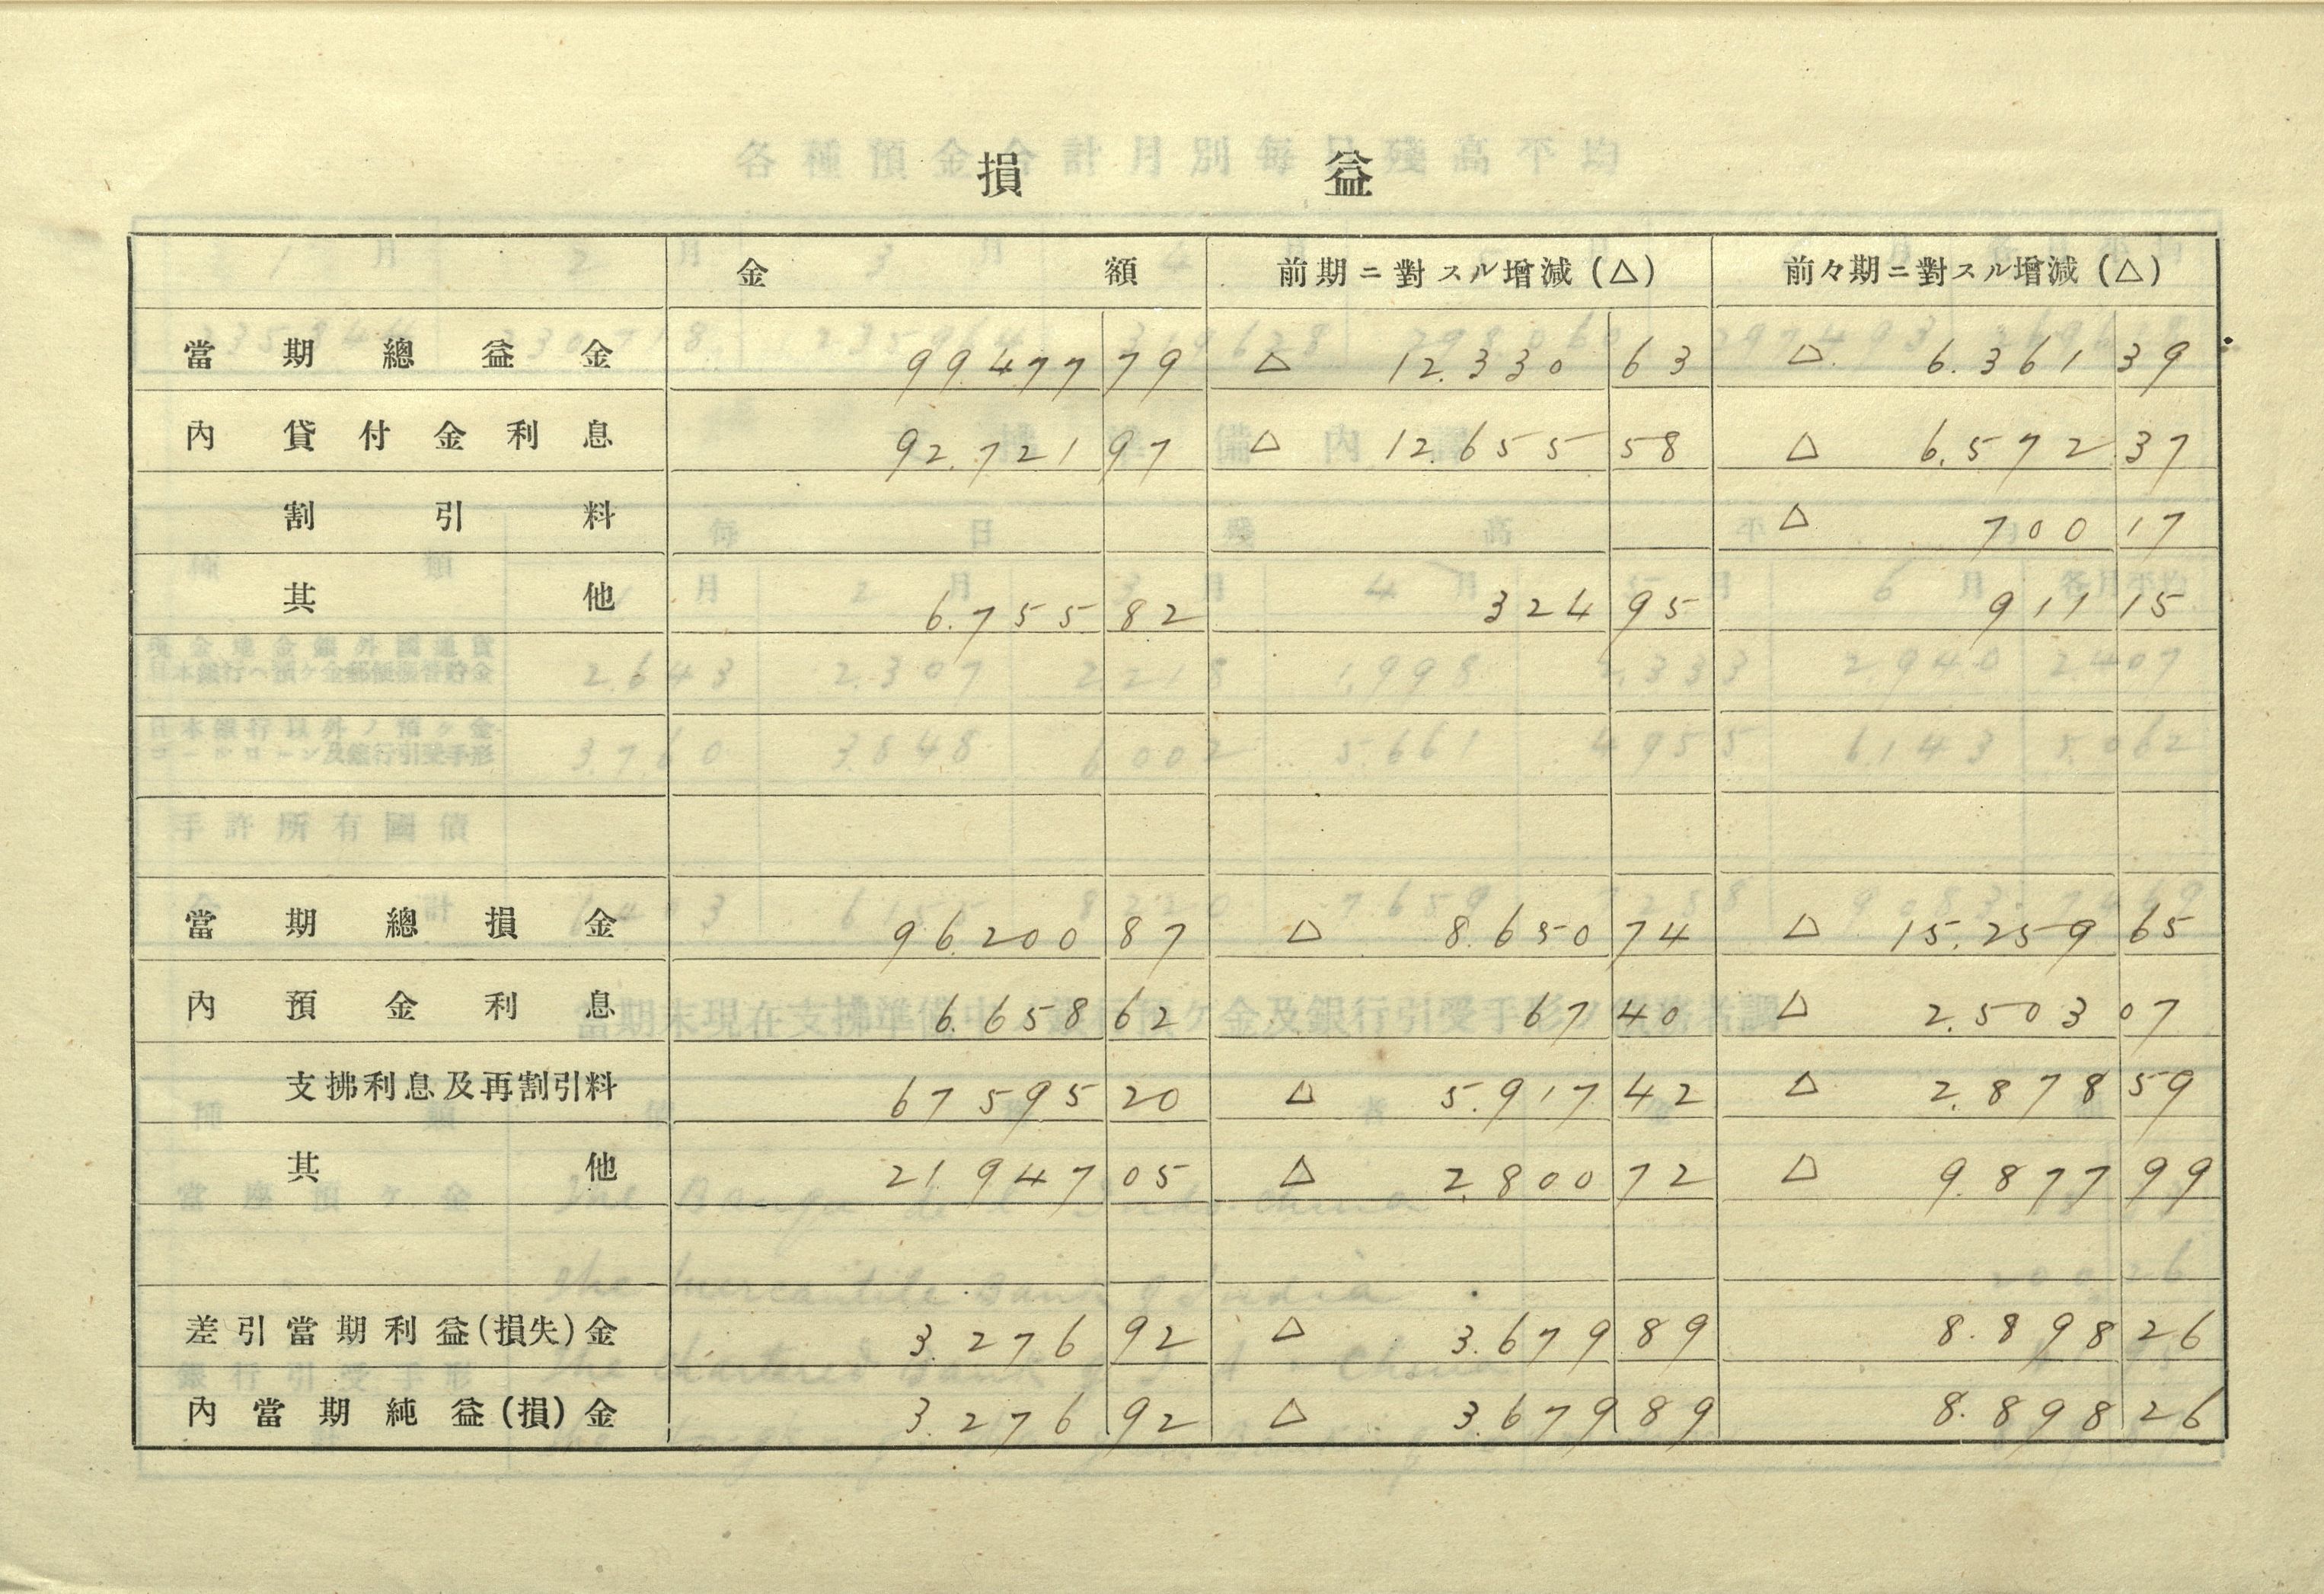 損 益
金 額 前期ニ對スル增減(△) 前々期ニ對スル增減(△)
當期總益金 99.477 79 △ 12.330 63 △ 6.361 39
內 貸付金利息 92.721 97 △ 12.655 58 △ 6.572 37
割引料 △ 700 17
其他 6.755 82 324 95 911 15
當期總損金 96.200 87 △ 8.650 74 △ 15.259 65
內 預金利息 6.658 62 67 40 △ 2.503 07
支拂利息及再割引料 67595 20 △ 5.917 42 △ 2.878 59
其他 21.947 05 △ 2.800 72 △ 9.877 99
差引當期利益(損失)金 3.276 92 △ 3.679 89 8.898 26
內當期純益(損)金 3.276 92 △ 3.679 89 8.898 26